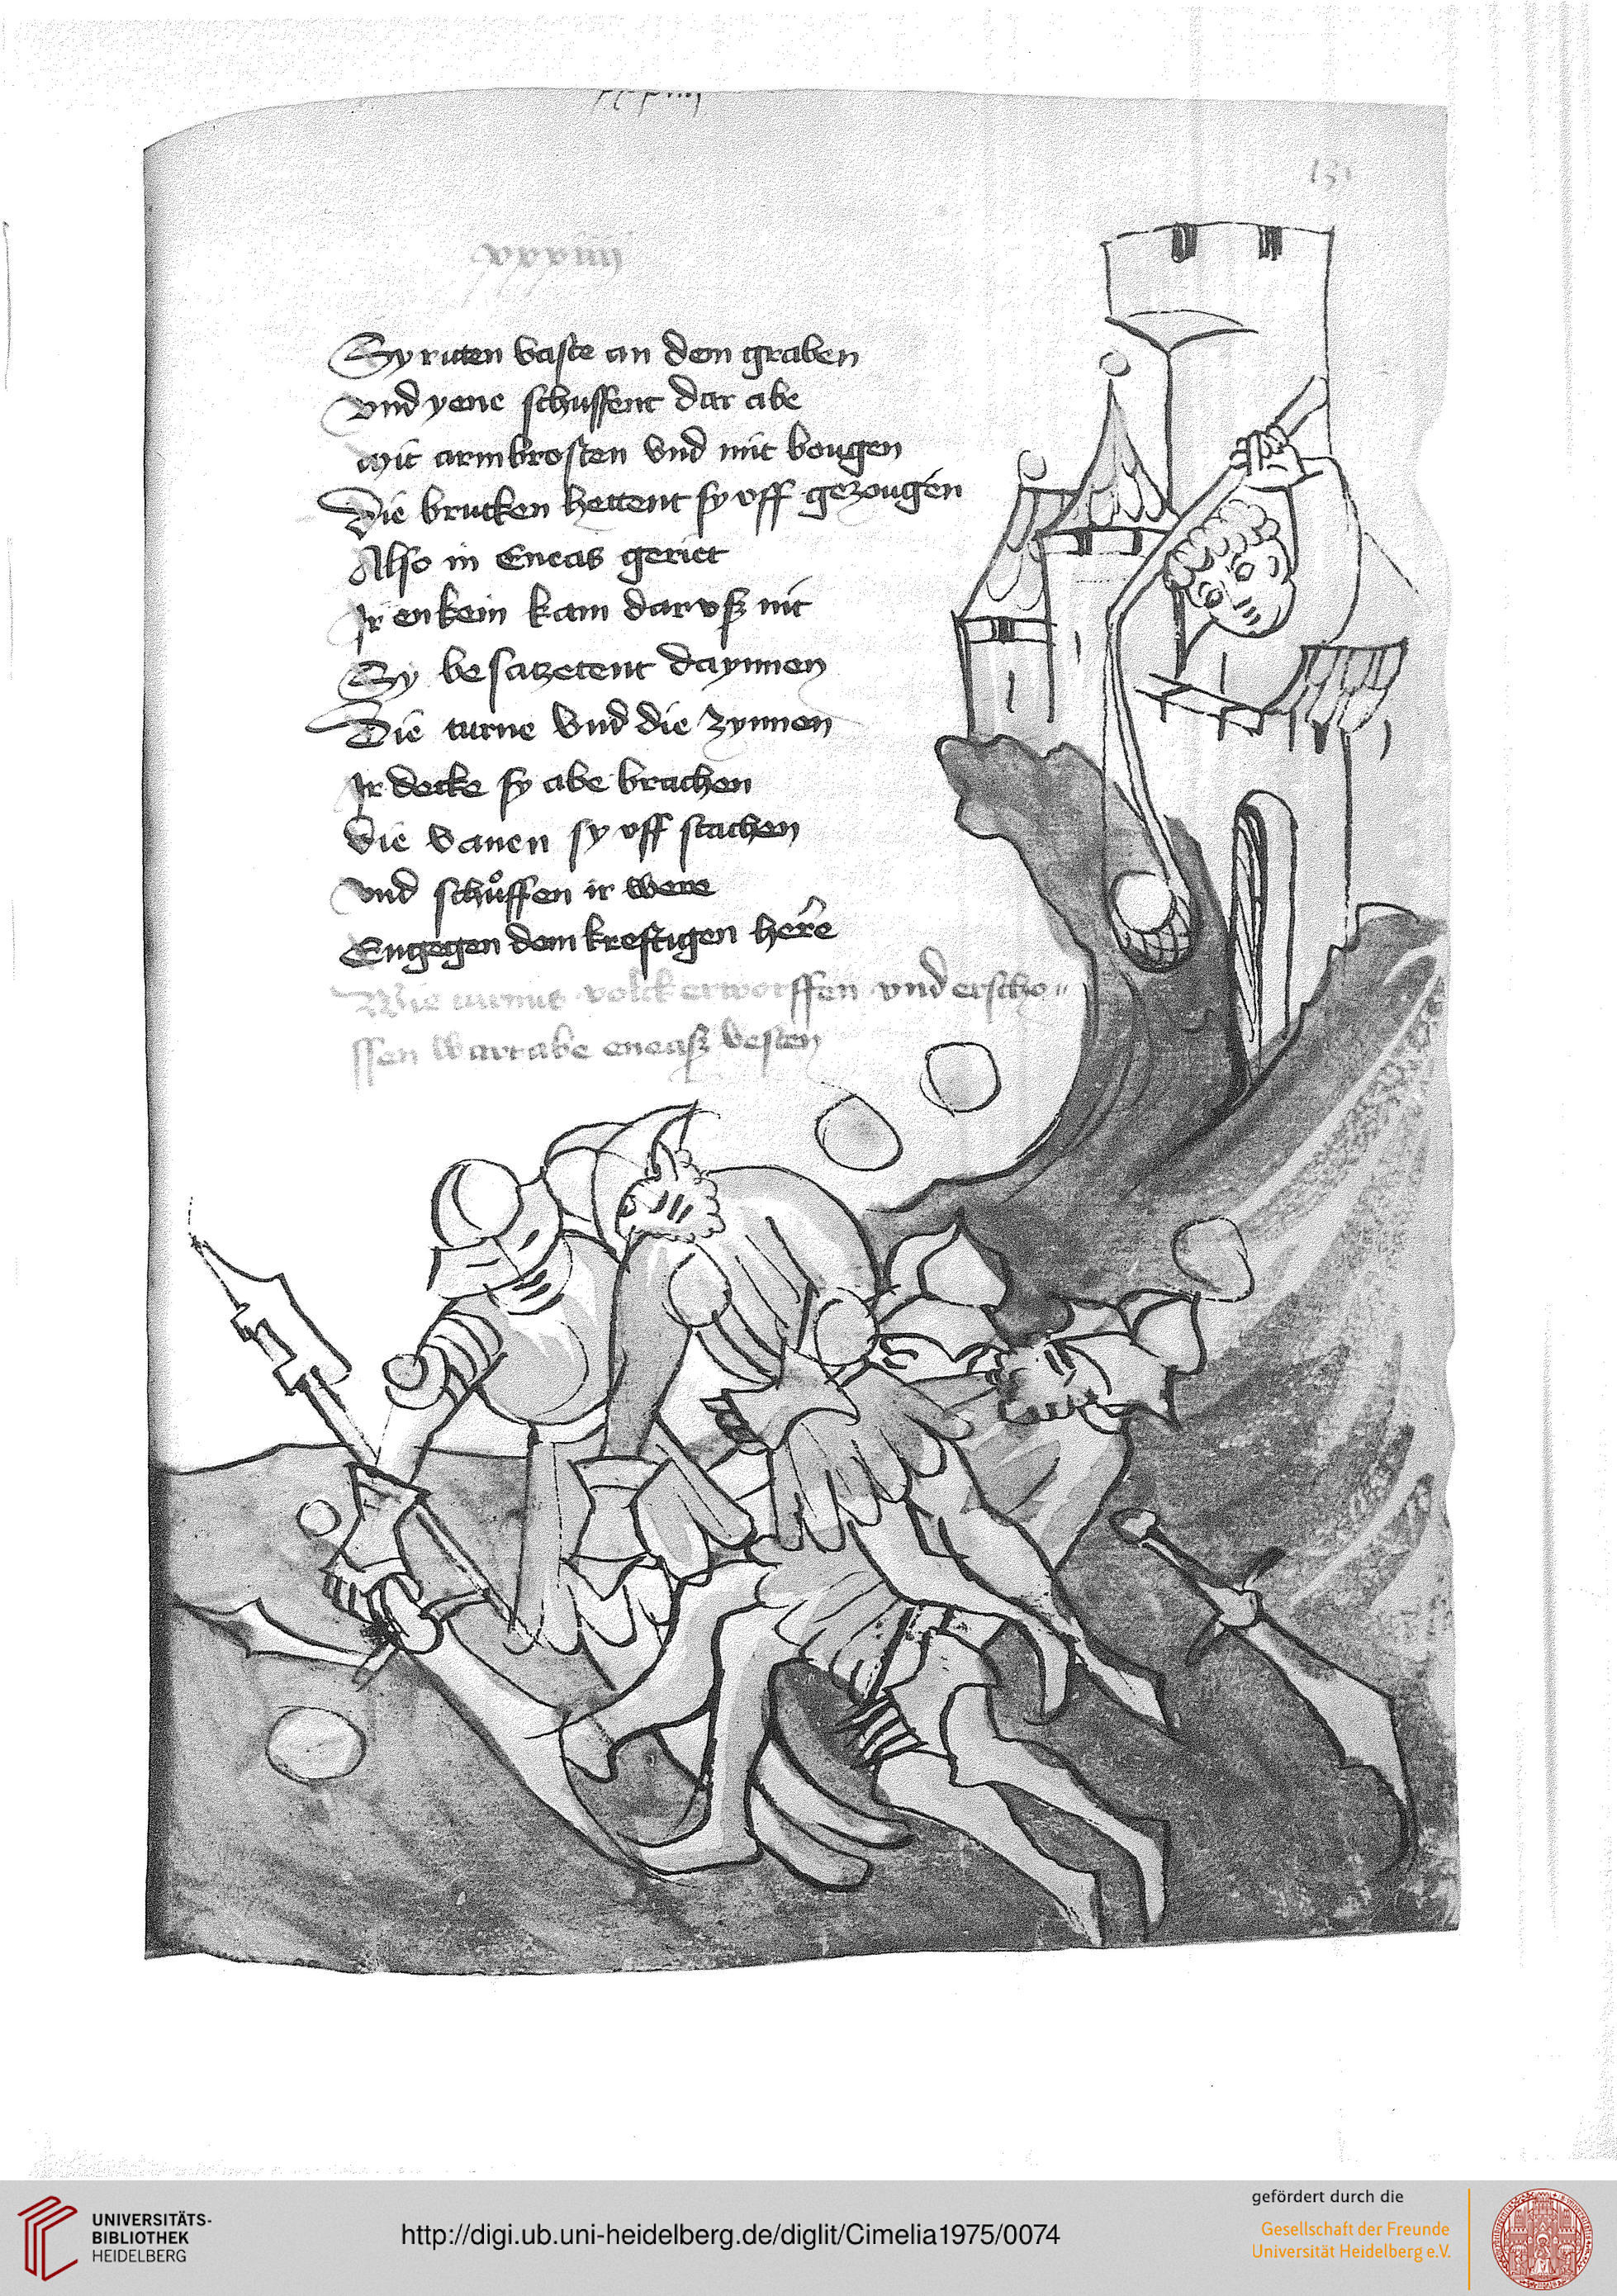 131
xxxiiij
Sy ritten vaste an dem graben
vnd yene schussent dar abe
Mit armbrosten vnd mit bougen
Die brucken hettent sy vff gezougen
Also in Eneas geriet
Ir enkein kam dar vß nit
Sy besatzetent daynnen
Die turne vnd die zynnen
Ir decke sy abe brachen
Die vanen sy vff stachen
vnd schůffen ir were
Engegen dem kreftigen here
Wie turnus volck erworffen vnd erscho〃
ssen wart abe eneaß vesten
UNIVERSITÄTS-
BIBLIOTHEK
HEIDELBERG
http://digi.ub.uni-heidelberg.de/diglit/Cimelia1975/0074
gefördert durch die
Gesellschaft der Freunde
Universität Heidelberg e.V.